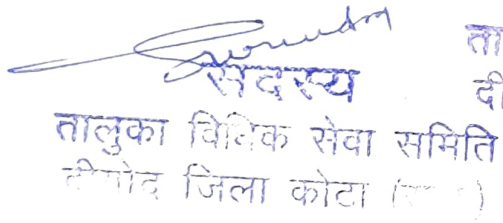 ता
सदस्य
दी
तालुका विधिक सेवा समिति
जिला कोटा